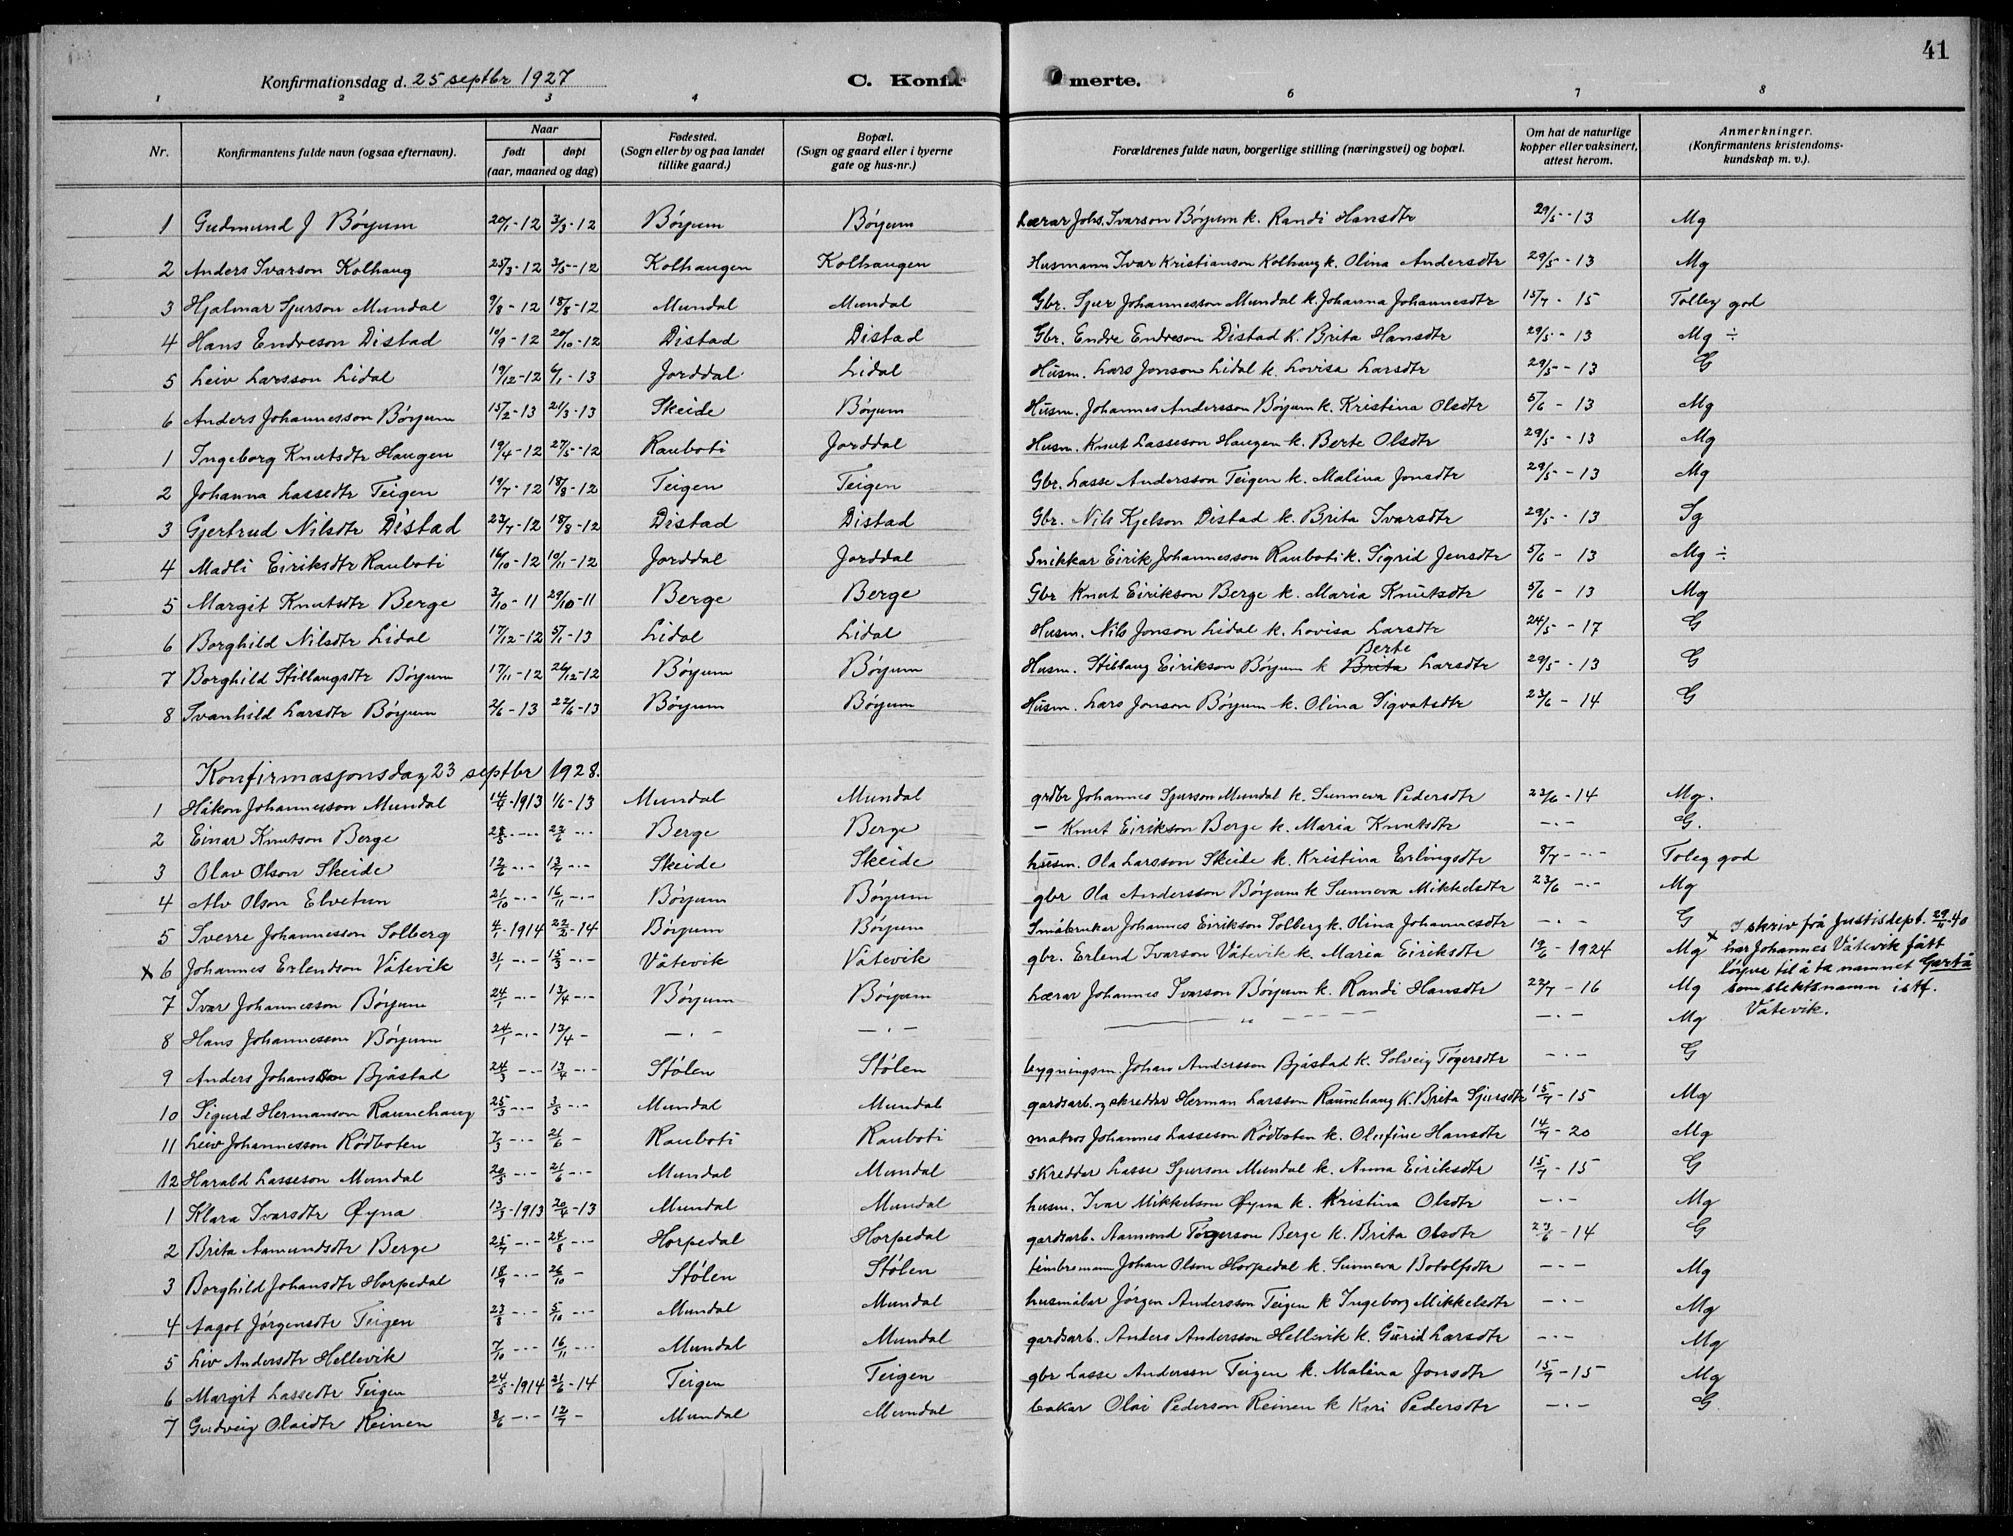 41
Konfirmationsdag d. 25 septbr 1927 C. Konfir merte.
1 2 3 4 6 7 8
Nr. Konfirmantens fulde navn (ogsaa efternavn). Naar født døpt (aar, maaned og dag) Fødested. (Sogn eller by og paa landet tillike gaard.) Bopæl. (Sogn og gaard eller i byerne gate og hus-nr.) Forældrenes fulde navn, borgerlige stilling (næringsvei) og bopæl. Om hat de naturlige kopper eller vaksinert, attest herom. Anmerkninger. (Konfirmantens kristendomskundskap m. v.)
1 Gudmund J Bøyum 20/1-12 3/3-12 Bøyum Bøyum Lærar Johs. Ivarson Bøyum k. Randi Hansdtr 29/5-13 Mg
2 Anders Ivarson Kolhaug 25/3-12 3/5-12 Kolhaugen Kolhaugen Husmann Ivar Kristianson Kolhaug k. Olina Andersdtr 29/5-13 Mg
3 Hjalmar Sjurson Mundal 9/8-12 18/8-12 Mundal Mundal Gbr. Sjur Johannesson Mundal k. Johanna Johannesdtr 15/7-15 Tolleg god
4 Hans Endreson Distad 10/9-12 20/10-12 Distad Distad Gbr. Endre Endreson Distad k. Brita Hansdtr 29/5-13 Mg ÷
5 Leiv Larsson Lidal 19/12-12 6/1-13 Jorddal Lidal Husm. Lars Jonson Lidal k. Lovisa Larsdtr 29/5-13 G
6 Anders Johannesson Bøyum 15/2-13 21/3-13 Skeide Bøyum Husm. Johannes Andersson Bøyum k. Kristina Olsdtr 5/6-13 Mg
1 Ingeborg Knutsdtr Haugen 19/4-12 27/5-12 Rauboti Jorddal Husm. Knut Lasseson Haugen k. Berte Olsdtr 29/5-13 Mg
2 Johanna Lassedtr Teigen 19/7-12 18/8-12 Teigen Teigen Gbr. Lasse Andersson Teigen k. Malina Jonsdtr 29/5-13 Mg
3 Gjertrud Nilsdtr Distad 23/7-12 18/8-12 Distad Distad Gbr. Nils Kjelson Distad k. Brita Ivarsdtr 29/5-13 Sg
4 Madli Eiriksdtr Rauboti 16/10-12 10/11-12 Jorddal Jorddal Snikkar Eirik Johannesson Rauboti k. Sigrid Jensdtr 5/6-13 Mg ÷
5 Margit Knutsdtr Berge 3/10-11 29/10-11 Berge Berge Gbr Knut Eirikson Berge k. Maria Knutsdtr 5/6-13 Mg
6 Borghild Nilsdtr Lidal 17/12-12 5/1-13 Lidal Lidal Husm. Nils Jonson Lidal k. Lovisa Larsdtr 24/5-17 G
Berte
7 Borghild Stillaugsdtr Bøyum 17/11-12 26/12-12 Bøyum Bøyum Husm. Stillaug Eirikson Bøyum k Brita Larsdtr 29/5-13 G
8 Svanhild Larsdtr Bøyum 2/6-13 22/6-13 Bøyum Bøyum Husm. Lars Jonson Bøyum k. Olina Sigvatsdtr 23/6-14 G
Konfirmasjonsdag 23 septbr 1928.
1 Håkon Johannesson Mundal 14/4-1913 1/6-13 Mundal Mundal grdbr Johannes Sjurson Mundal k. Sunneva Pedersdtr 23/6-14 Mg.
2 Einar Knutson Berge 28/5 -.- 22/6 -.- Berge Berge — Knut Eirikson Berge k. Maria Knutsdtr -.- G.
3 Olav Olson Skeide 12/6 -.- 13/7 -.- Skeide Skeide husm. Ola Larsson Skeide k. Kristina Erlingsdtr 8/7 -.- Toleg god
4 Alv Olson Elvetun 21/10 -.- 16/11 -.- Bøyum Bøyum gbr Ola Andersson Bøyum k Sunneva Mikkelsdtr 23/6 -.- Mg
5 Sverre Johannesson Solberg 4/1-1914 22/3-14 Bøyum Bøyum Småbrukar Johannes Eirikson Solberg k. Olina Johannesdtr -.- G
x 6 Johannes Erlendson Våtevik 3/1 -.- 15/3 -.- Våtevik Våtevik gbr. Erland Ivarson Våtevik k. Maria Eiriksdtr 19/6-1924 Mg
x I skriv frå Justisdept. 29/11-40
har Johannes Våtevik fått
løyve til å ta namnet Gartå
som slektsnamn istf.
Våtevik.
7 Ivar Johannesson Bøyum 24/1 -.- 13/4 -.- Bøyum Bøyum Lærar Johannes Ivarson Bøyum k. Randi Hansdtr 22/7-16 Mg
8 Hans Johannesson Bøyum 24/1 -.- 13/4 - -.- -.- " -.- Mg
9 Anders Johansson Bjåstad 24/3 -.- 13/4 -.- Stølen Stølen bygningsm. Johan Andersson Bjåstad k. Solveig Tøgersdtr -.- G
10 Sigurd Hermanson Raunehaug 25/3 -.- 3/5 -.- Mundal Mundal gardsarb. og skreddar Herman Larsson Raunehaug k. Brita Sjursdtr 15/7-15 Mg
11 Leiv Johannesson Rødboten 7/3 -.- 21/6 - Rauboti Rauboti matros Johannes Lasseson Rødboten k. Olufine Hansdtr 14/7-20 Mg
12 Harald Lasseson Mundal 20/5 -.- 21/6 -.- Mundal Mundal skreddar Lasse Sjurson Mundal k. Anna Eiriksdtr 15/7-15 G
1 Klara Ivarsdtr Øyna 13/3-1913 20/4-13 Mundal Mundal husm. Ivar Mikkelson Øyna k. Kristina Olsdtr -.- Mg
2 Brita Aamundsdtr Berge 25/7 -.- 24/8 -.- Horpedal Horpedal gardsarb. Aamund Tøgerson Berge k. Brita Olsdtr 23/6-14 G
3 Borghild Johansdtr Horpedal 18/9 -.- 26/10 - Stølen Stølen timbrmann Johan Olson Horpedal k. Sunneva Botolfsdtr -.- Mg
4 Aagot Jørgensdtr Teigen 23/8 -.- 5/10 -.- Mundal Mundal husmålar Jørgen Andersson Teigen k Ingeborg Mikkelsdtr -.- Mg
5 Liv Andersdtr Hellevik 7/10 -.- 16/11 -.- Mundal Mundal gardsarb. Anders Andersson Hellevik k. Gurid Larsdtr -.- Mg
6 Margit Lassedtr Teigen 24/5-1914 21/6-14 Teigen Teigen gbr Lasse Anderssn Teigen k. Malina Jonsdtr 15/7-15 Mg
7 Gudveig Olaidtr Reinen 8/6 -.- 12/7 - Mundal Mundal bakar Olai Pederson Reinen k Kari Pedersdtr -.- G